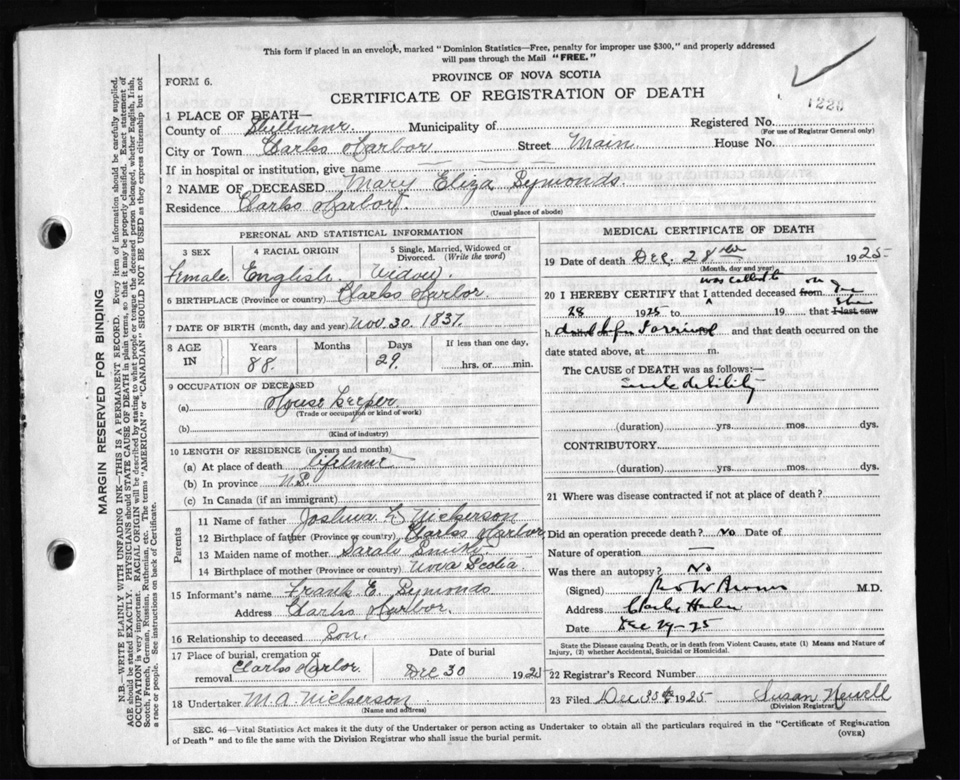 This form if placed in an envelope, marked "Dominion Statistics—Free, penalty for improper use $300," and properly addressed
will pass through the Mail "FREE."
PROVINCE OF NOVA SCOTIA
FORM 6.
CERTIFICATE OF REGISTRATION OF DEATH
1226
1 PLACE OF DEATH—
County of Shelburne Municipality of Registered No.
(For use of Registrar General only)
City or Town Clarks Harbor Street Main House No.
If in hospital or institution, give name
2 NAME OF DECEASED Mary Eliza Symonds.
Residence Clarks Harbor.
(Usual place of abode)
PERSONAL AND STATISTICAL INFORMATION
3 SEX 4 RACIAL ORIGIN 5 Single, Married, Widowed or Divorced. (Write the word)
Female. English. Widow.
6 BIRTHPLACE (Province or country) Clarks Harbor.
7 DATE OF BIRTH (month, day and year) Nov. 30. 1837.
8 AGE IN Years Months Days If less than one day,
88. 29. hrs. or min.
9 OCCUPATION OF DECEASED
(a) House Keeper
(Trade or occupation or kind of work)
(b)
(Kind of industry)
10 LENGTH OF RESIDENCE (in years and months)
(a) At place of death lifetime
(b) In province N.S.
(c) In Canada (if an immigrant)
Parents
11 Name of father Joshua Nickerson
12 Birthplace of father (Province or country) Clarks Harbor
13 Maiden name of mother Sarah Smith
14 Birthplace of mother (Province or country) Nova Scotia.
15 Informant's name Frank E. Symonds
Address Clarks Harbor.
16 Relationship to deceased Son.
17 Place of burial, cremation or removal Clarks Harbor
Date of burial
Dec 30 1925
18 Undertaker M.A. Nickerson
(Name and address)
MEDICAL CERTIFICATE OF DEATH
19 Date of death Dec. 28 1925
(Month, day and year)
was called to
20 I HEREBY CERTIFY that I attended deceased from on
28 1925 to 19 that I last saw she
h and that death occurred on the
date stated above, at m.
The CAUSE of DEATH was as follows:—
Senile debility
(duration) yrs. mos. dys.
CONTRIBUTORY.
(duration) yrs. mos. dys.
21 Where was disease contracted if not at place of death?
Did an operation precede death? No Date of
Nature of operation —
Was there an autopsy? No
(Signed) M.D.
Address Clarks Harbor
Date Dec 29-25
State the Disease causing Death, or in Death from Violent Causes, state (1) Means and Nature of
Injury, (2) whether Accidental, Suicidal or Homicidal.
22 Registrar's Record Number
23 Filed Dec 1925 Susan Newell
(Division Registrar)
SEC. 46—Vital Statistics Act makes it the duty of the Undertaker or person acting as Undertaker to obtain all the particulars required in the "Certificate of Registration
of Death" and to file the same with the Division Registrar who shall issue the burial permit.
(OVER)
MARGIN RESERVED FOR BINDING
N.B.—WRITE PLAINLY WITH UNFADING INK—THIS IS A PERMANENT RECORD. Every item of information should be carefully supplied.
AGE should be stated EXACTLY. PHYSICIANS should STATE CAUSE OF DEATH in plain terms, so that it may be properly classified. Exact statement of
OCCUPATION is very important. RACIAL ORIGIN will be described by stating to what people or tongue the deceased person belonged, whether English, Irish,
Scotch, French, German, Russian, Ruthenian, etc. The terms "AMERICAN" or "CANADIAN" SHOULD NOT BE USED as they express citizenship but not
a race or people. See instructions on back of Certificate.